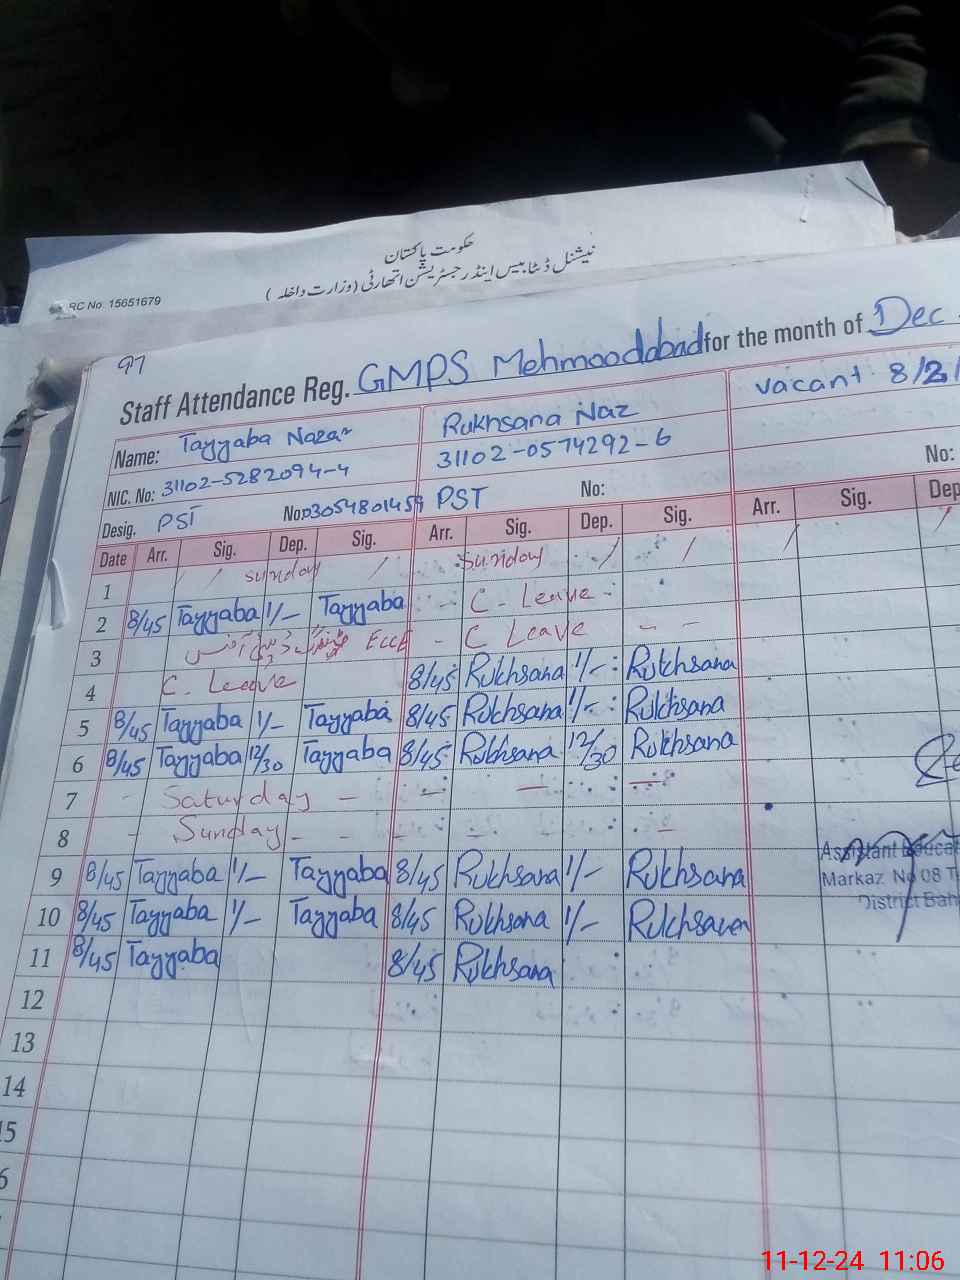 حکومت پاکستان
نیشنل ڈیٹابیس اینڈ رجسٹریشن اتھارٹی (وزارت داخلہ)
RC No: 15651679
97
Staff Attendance Reg. GMPS Mehmoodabad for the month of Dec
Name: Tayyaba Nazar Rukhsana Naz vacant 8/2/
NIC. No: 31102-5282094-4 31102-0574292-6
Desig. PST No: 03054801459 PST No: No:
Date Arr. Sig. Dep. Sig. Arr. Sig. Dep. Sig. Arr. Sig. Dep
1 / / sunday / sunday / / / /
2 8/45 Tayyaba 1/- Tayyaba - C. Leave
3 ECCE - C Leave - -
4 C. Leave 8/45 Rukhsana 1/- Rukhsana
5 8/45 Tayyaba 1/- Tayyaba 8/45 Rukhsana 1/- Rukhsana
6 8/45 Tayyaba 12/30 Tayyaba 8/45 Rukhsana 12/30 Rukhsana
7 - Saturday - - - -
8 - Sunday - - - - -
9 8/45 Tayyaba 1/- Tayyaba 8/45 Rukhsana 1/- Rukhsana
Assistant Educat
Markaz No 08 T
District Bah
10 8/45 Tayyaba 1/- Tayyaba 8/45 Rukhsana 1/- Rukhsana
11 8/45 Tayyaba 8/45 Rukhsana
12
13
14
15
6
11-12-24 11:06